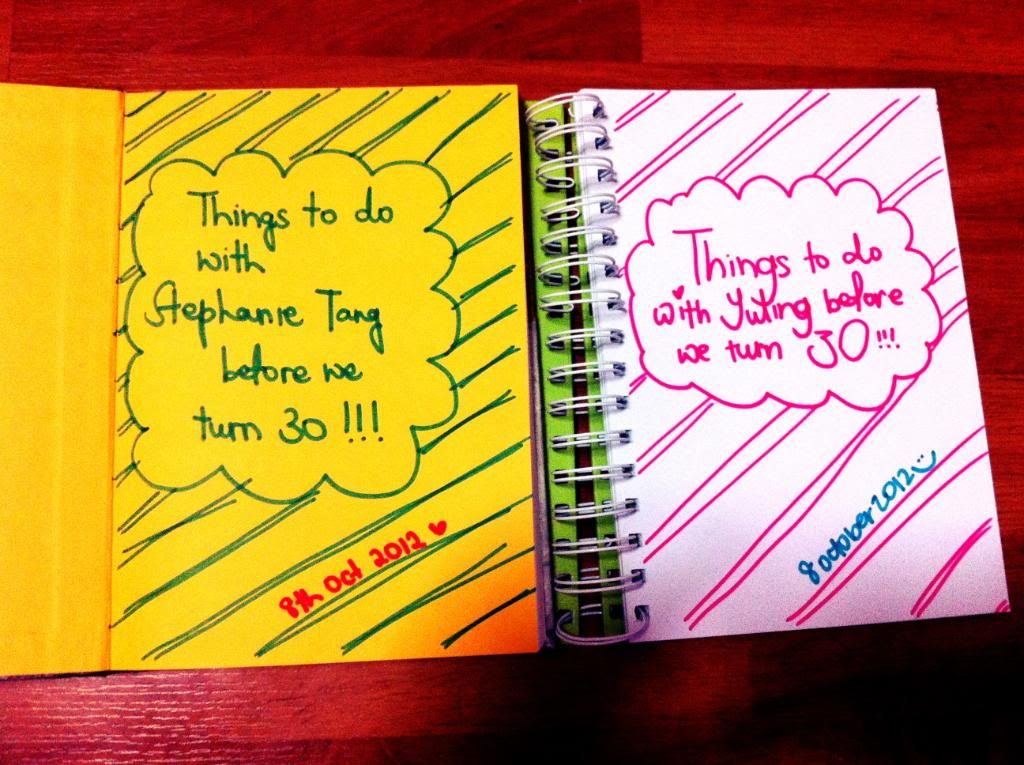 Things to do
with
Stephanie Tang
before we
turn 30 !!!
8th Oct 2012
Things to do
with Yuting before
we turn 30 !!!
8 october 2012